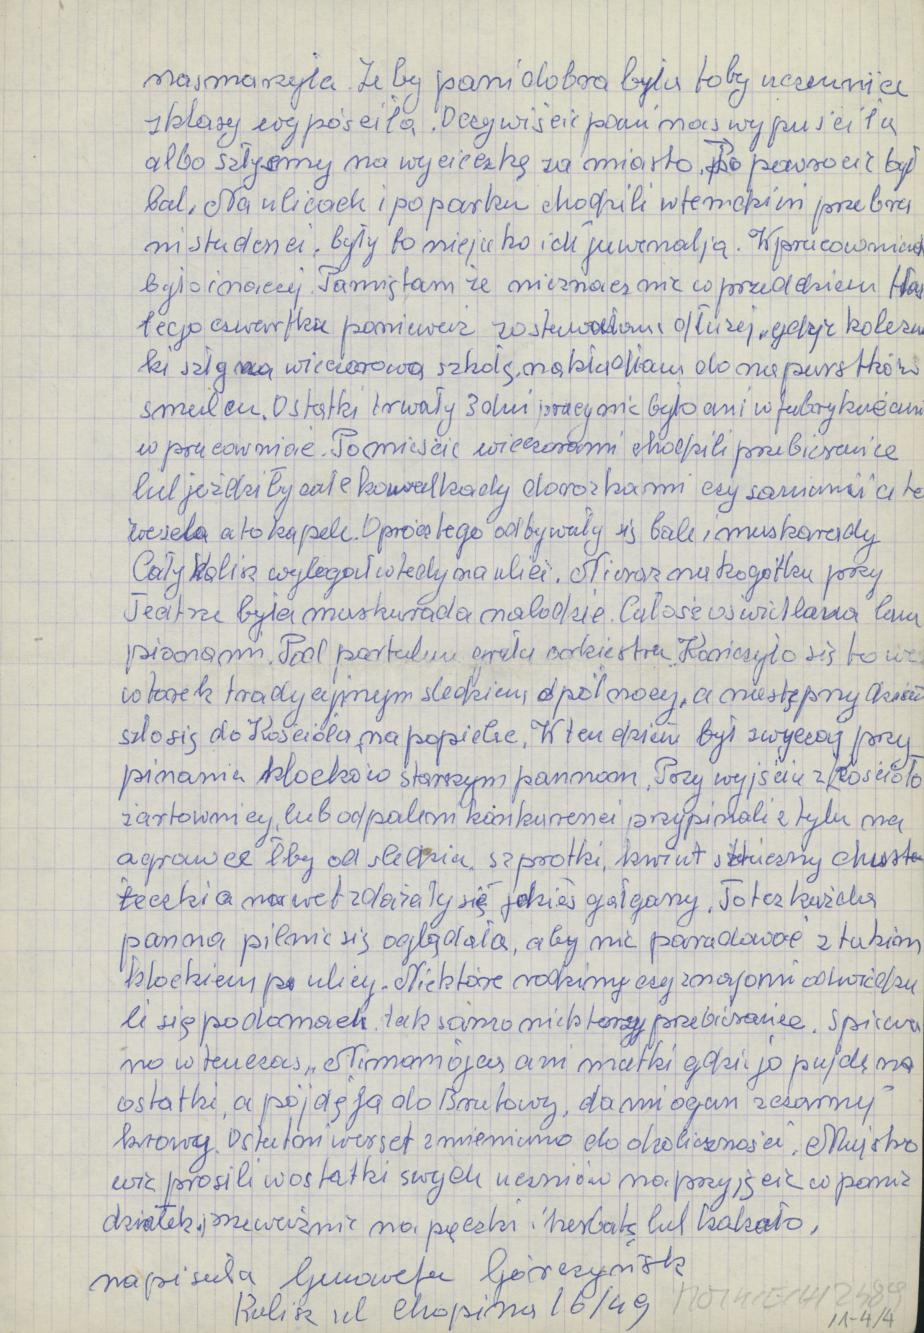 nasmarzyła. Że by pani dobra była toby uczennice
z klasy wypóściła. Oczywiście pani nas wypuściła
albo szłysmy na wycieczkę za miasto. Po powrocie był
bal. Na ulicach i po parku chodzili wtemckim przebra
ni studenci. były to niejako ich juwenalją. W pracowniach
było inaczej. Pamiętam że nieznacznie w przeddzień tłus
tego czwartku ponieważ zostawałam dłużej, gdyż koleżan
ki szły na wieczorową szkołę, nakładłam do naparstków
smalcu. Ostatki trwały 3 dni pracy nie było ani w fabrykach ani
w pracowniac. Po mieście wieczorami chodzili przebierańce
lub jeździły całe kawalkady dorożkami czy saniami a to
wesela a to kapele. Oprócz tego odbywały się bale i maskarady
Cały Kalisz wylegał wtedy na ulice. Nieraz na kogótku przy
Teatrze była maskarada na łodzie. Całość oświetlana lam
pionami. Pod portalem grała orkiestra. Kończyło się to we
wtorek tradycyjnym sledziem o północy, a nastepny dzień
szło się do Kościoła na popielec. W ten dzień był zwyczaj przy
pinania klocków starszym pannom. Przy wyjściu z Kościoła
żartownicy, lub odpaleni konkurenci przypinali z tyłu na
agrawce łby od śledzia, szprotki, kwiat sztuczny chuste
teczki a nawet zdażały się jakieś gałgany. Toteż każda
panna pilnie się oglądała, aby nie paradować z takim
klockiem po ulicy. Niektóre rodziny czy znajomi odwiedza
li się po domach. tak samo niektorzy przebierańce. Spiewa
no wtenczas „Nimam ojca ani matki gdzie jo pujdę na
ostatki, a pójdę ja do Brutowy, da mi ogun z czarny
krowy. Ostatni werset zmieniano do okoliczności. Majstro
wie prosili w ostatki swych uczniów na przyjęcie w ponie
działek, przeważnie na pączki i herbatę lub kakało.
napisała Genowefa Górczyńsk
Kalisz ul Chopina 16/49
11-4/4